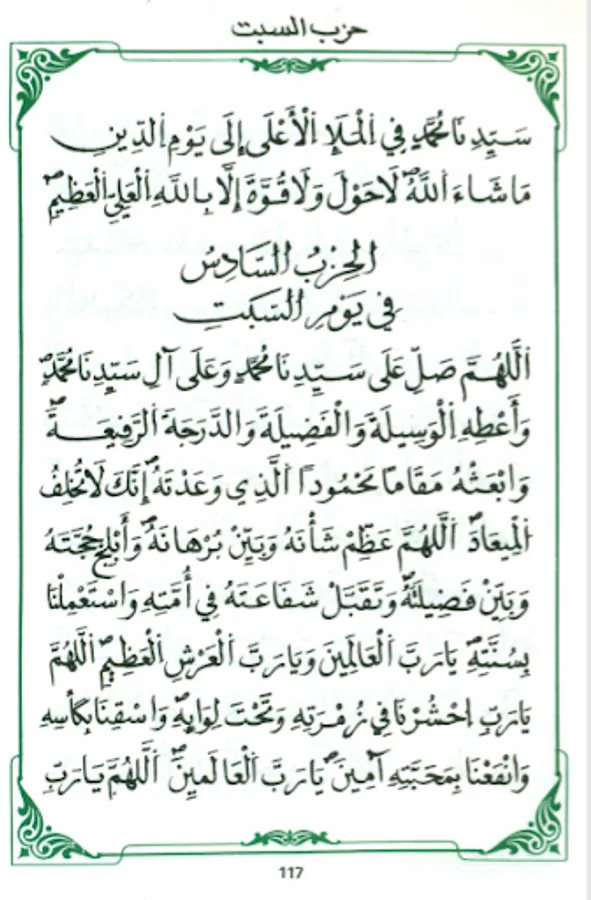 حزب السبت
سَيِّدِنَا مُحَمَّدٍ فِي الْمَلَإِ الْأَعْلَى إِلَى يَوْمِ الدِّينِ
مَا شَاءَ اللَّهُ لَا حَوْلَ وَلَا قُوَّةَ إِلَّا بِاللَّهِ الْعَلِيِّ الْعَظِيمِ
الْحِزْبُ السَّادِسُ
فِي يَوْمِ السَّبْتِ
اللَّهُمَّ صَلِّ عَلَى سَيِّدِنَا مُحَمَّدٍ وَعَلَى آلِ سَيِّدِنَا مُحَمَّدٍ
وَأَعْطِهِ الْوَسِيلَةَ وَالْفَضِيلَةَ وَالدَّرَجَةَ الرَّفِيعَةَ
وَابْعَثْهُ مَقَامًا مَحْمُودًا الَّذِي وَعَدْتَهُ إِنَّكَ لَا تُخْلِفُ
الْمِيعَادَ اللَّهُمَّ عَظِّمْ شَأْنَهُ وَبَيِّنْ بُرْهَانَهُ وَأَبْلِجْ حُجَّتَهُ
وَبَيِّنْ فَضِيلَتَهُ وَتَقَبَّلْ شَفَاعَتَهُ فِي أُمَّتِهِ وَاسْتَعْمِلْنَا
بِسُنَّتِهِ يَا رَبَّ الْعَالَمِينَ وَيَا رَبَّ الْعَرْشِ الْعَظِيمِ اللَّهُمَّ
يَا رَبِّ احْشُرْنَا فِي زُمْرَتِهِ وَتَحْتَ لِوَائِهِ وَاسْقِنَا بِكَأْسِهِ
وَانْفَعْنَا بِمَحَبَّتِهِ آمِينَ يَا رَبَّ الْعَالَمِينَ اللَّهُمَّ يَا رَبِّ
117